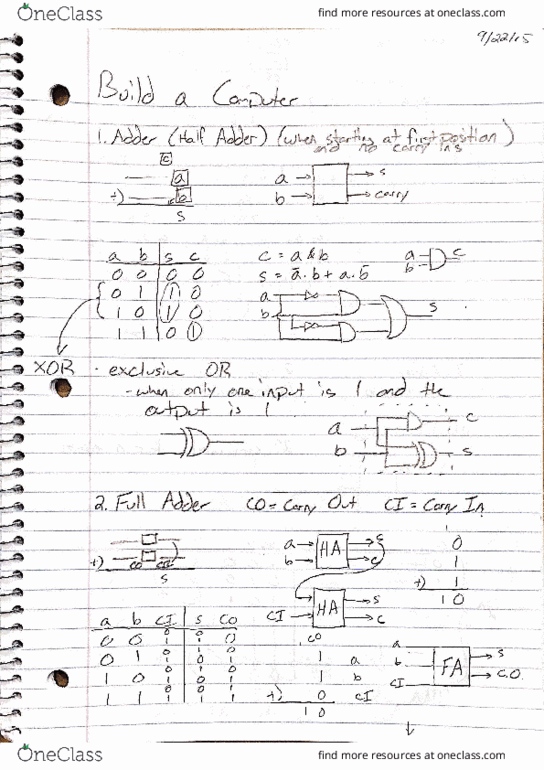 OneClass
find more resources at oneclass.com
9/22/15
Build a Computer
1. Adder (Half Adder) (when starting at first position)
and no carry ins
c
a
+) b
s
a
b
s
carry
a b s c
0 0 0 0
0 1 1 0
1 0 1 0
1 1 0 1
c = a & b
s = ā·b + a·b̄
a
b
c
a
b
s
XOR · exclusive OR
- when only one input is 1 and the
output is 1
a
b
c
s
2. Full Adder CO = Carry Out CI = Carry In
+) CO CI
s
a
b
HA
s
c
CI
HA
s
c
0
1
+) 1
1 0
a b CI s Co
0 0 0 0 0
1 1 0
0 1 0 1 0
1 0 1
1 0 0 1 0
1 0 1
1 1 0 0 1
1 1 1
CO
1 a
1 b
+) 0 CI
1 0
a
b
CI
FA
s
C.O.
OneClass
find more resources at oneclass.com